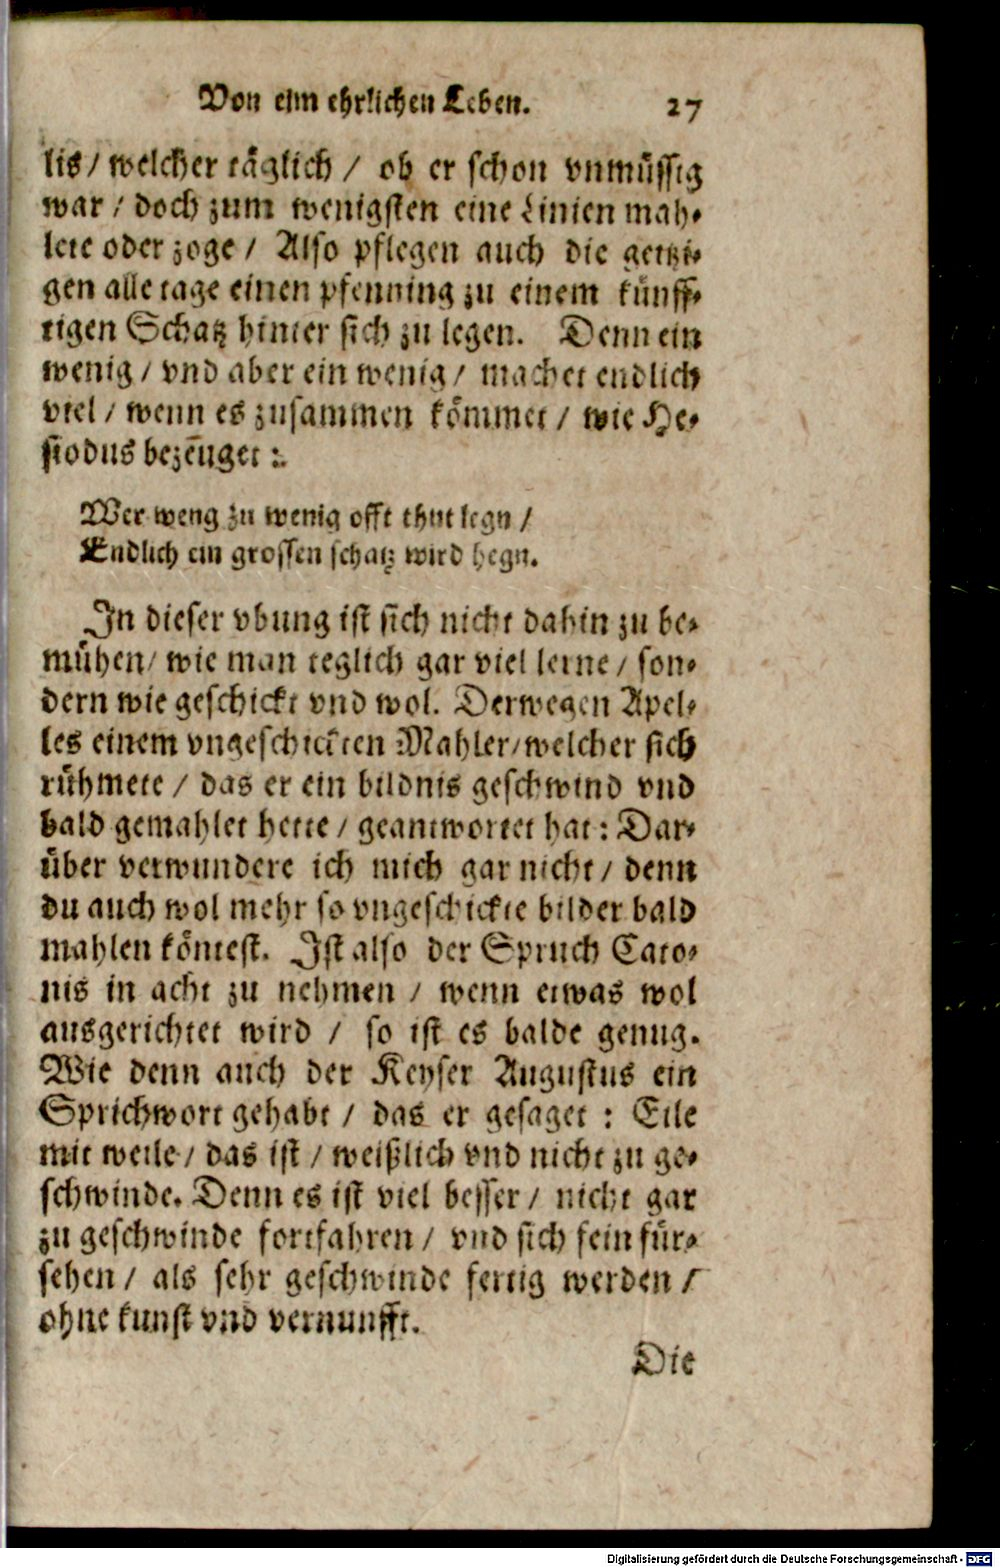 Von eim ehrlichen Leben. 27
lis / welcher täglich / ob er schon vnmüssig
war / doch zum wenigsten eine Linien mah-
lete oder zoge / Also pflegen auch die geitzi-
gen alle tage einen pfenning zu einem künff-
tigen Schatz hinter sich zu legen. Denn ein
wenig / vnd aber ein wenig / machet endlich
viel / wenn es zusammen kömmet / wie He-
siodus bezeuget:
Wer weng zu wenig offt thut legn /
Endlich ein grossen schatz wird hegn.
In dieser vbung ist sich nicht dahin zu be-
mühen / wie man teglich gar viel lerne / son-
dern wie geschickt vnd wol. Derwegen Apel-
les einem vngeschickten Mahler / welcher sich
rühmete / das er ein bildnis geschwind vnd
bald gemahlet hette / geantwortet hat: Dar-
über verwundere ich mich gar nicht / denn
du auch wol mehr so vngeschickte bilder bald
mahlen köntest. Ist also der Spruch Cato-
nis in acht zu nehmen / wenn etwas wol
ausgerichtet wird / so ist es balde genug.
Wie denn auch der Keyser Augustus ein
Sprichwort gehabt / das er gesaget: Eile
mit weile / das ist / weißlich vnd nicht zu ge-
schwinde. Denn es ist viel besser / nicht gar
zu geschwinde fortfahren / vnd sich fein für-
sehen / als sehr geschwinde fertig werden /
ohne kunst vnd vernunfft.
Die
Digitalisierung gefördert durch die Deutsche Forschungsgemeinschaft - DFG